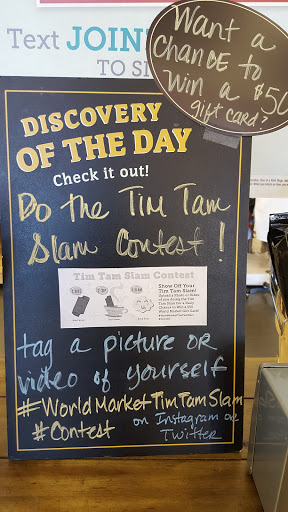 Text JOIN
TO SI
Want a
chance to
win a $50
gift card?
DISCOVERY
OF THE DAY
Check it out!
Do the Tim Tam
Slam Contest!
Tim Tam Slam Contest
Show Off Your
Tim Tam Slam!
tag a picture or
video of yourself
#WorldMarketTimTamSlam
#Contest on Instagram or
Twitter